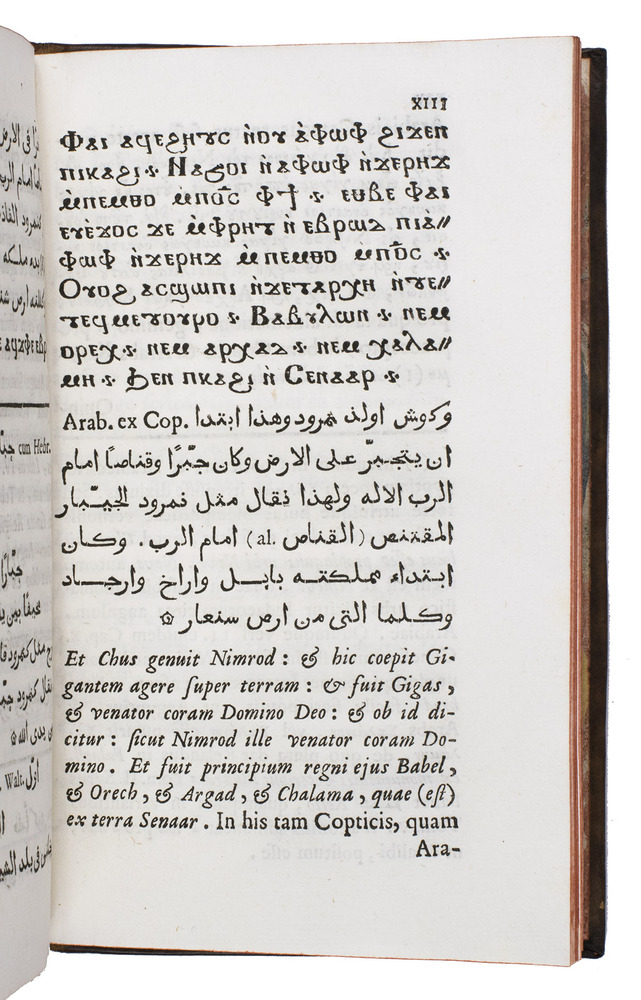 XIII
Ⲫⲁⲓ ⲁϥⲉⲣϩⲏⲧⲥ ⲛ̀ⲟⲩ ⲁ̀ⲫⲱⲫ ϩⲓϫⲉⲛ
ⲡⲓⲕⲁϩⲓ :
ⲙ̀ⲡⲉⲙⲑⲟ ⲙ̀ⲡⲟ̅ⲥ̅ ⲫϯ : ⲉⲑⲃⲉ ⲫⲁⲓ
ⲉⲩⲉ̀ϫⲟⲥ ϫⲉ ⲙ̀ⲫⲣⲏϯ ⲛ̀ ⲡⲓⲁ̀〃
ⲫⲱⲫ ⲙ̀ⲡⲉⲙⲑⲟ ⲙ̀ⲡⲟ̅ⲥ̅ :
Ⲟⲩⲟϩ ⲁⲥϣⲱⲡⲓ ⲛ̀ϫⲉⲧⲁⲣⲭⲏ ⲛ̀ⲧⲉ〃
ⲧⲉϥⲙⲉⲧⲟⲩⲣⲟ : Ⲃⲁⲃⲩⲗⲱⲛ : ⲛⲉⲙ
ⲟⲣⲉⲭ : ⲛⲉⲙ ⲁⲣⲭⲁⲇ : ⲛⲉⲙ ⲭⲁⲗⲁ〃
ⲙⲏ : Ϧⲉⲛ ⲡⲕⲁϩⲓ ⲛ̀ Ⲥⲉⲛⲁⲁⲣ :
Arab. ex Cop. وكوش اولد نمرود وهذا ابتدا
ان يتجبّر على الارض وكان جبّرا وقناصًا امام
الرب الاله ولهذا يقال مثل نمرود الجبّار
المقتنص (al. القناص) امام الرب. وكان
ابتداء مملكته بابل واراخ وارجاد
وكلما التى من ارض سنعار ۞
Et Chus genuit Nimrod : & hic coepit Gi-
gantem agere ſuper terram : & fuit Gigas ,
& venator coram Domino Deo : & ob id di-
citur : ſicut Nimrod ille venator coram Do-
mino . Et fuit principium regni ejus Babel ,
& Orech , & Argad , & Chalama , quae (eſt)
ex terra Senaar . In his tam Copticis, quam
Ara-